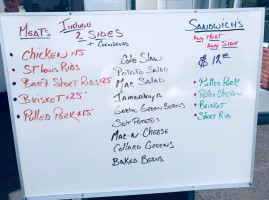 MEATS Include
2 SIDES
+ CORNBREAD
CHICKEN $15
ST Louis RIBS
BEEF SHORT RIBS $25
BRISKET $25
PULLED PORK $15
COLE SLAW
POTATO SALAD
MAC SALAD
JAMBALAYA
GARLIC GREEN BEANS
POTATOES
MAC-N-CHEESE
COLLARD GREENS
BAKED BEANS
SANDWICH'S
ANY MEAT
ANY SIDE
PULLED PORK
PULLED CHICKEN
BRISKET
SHORT RIB